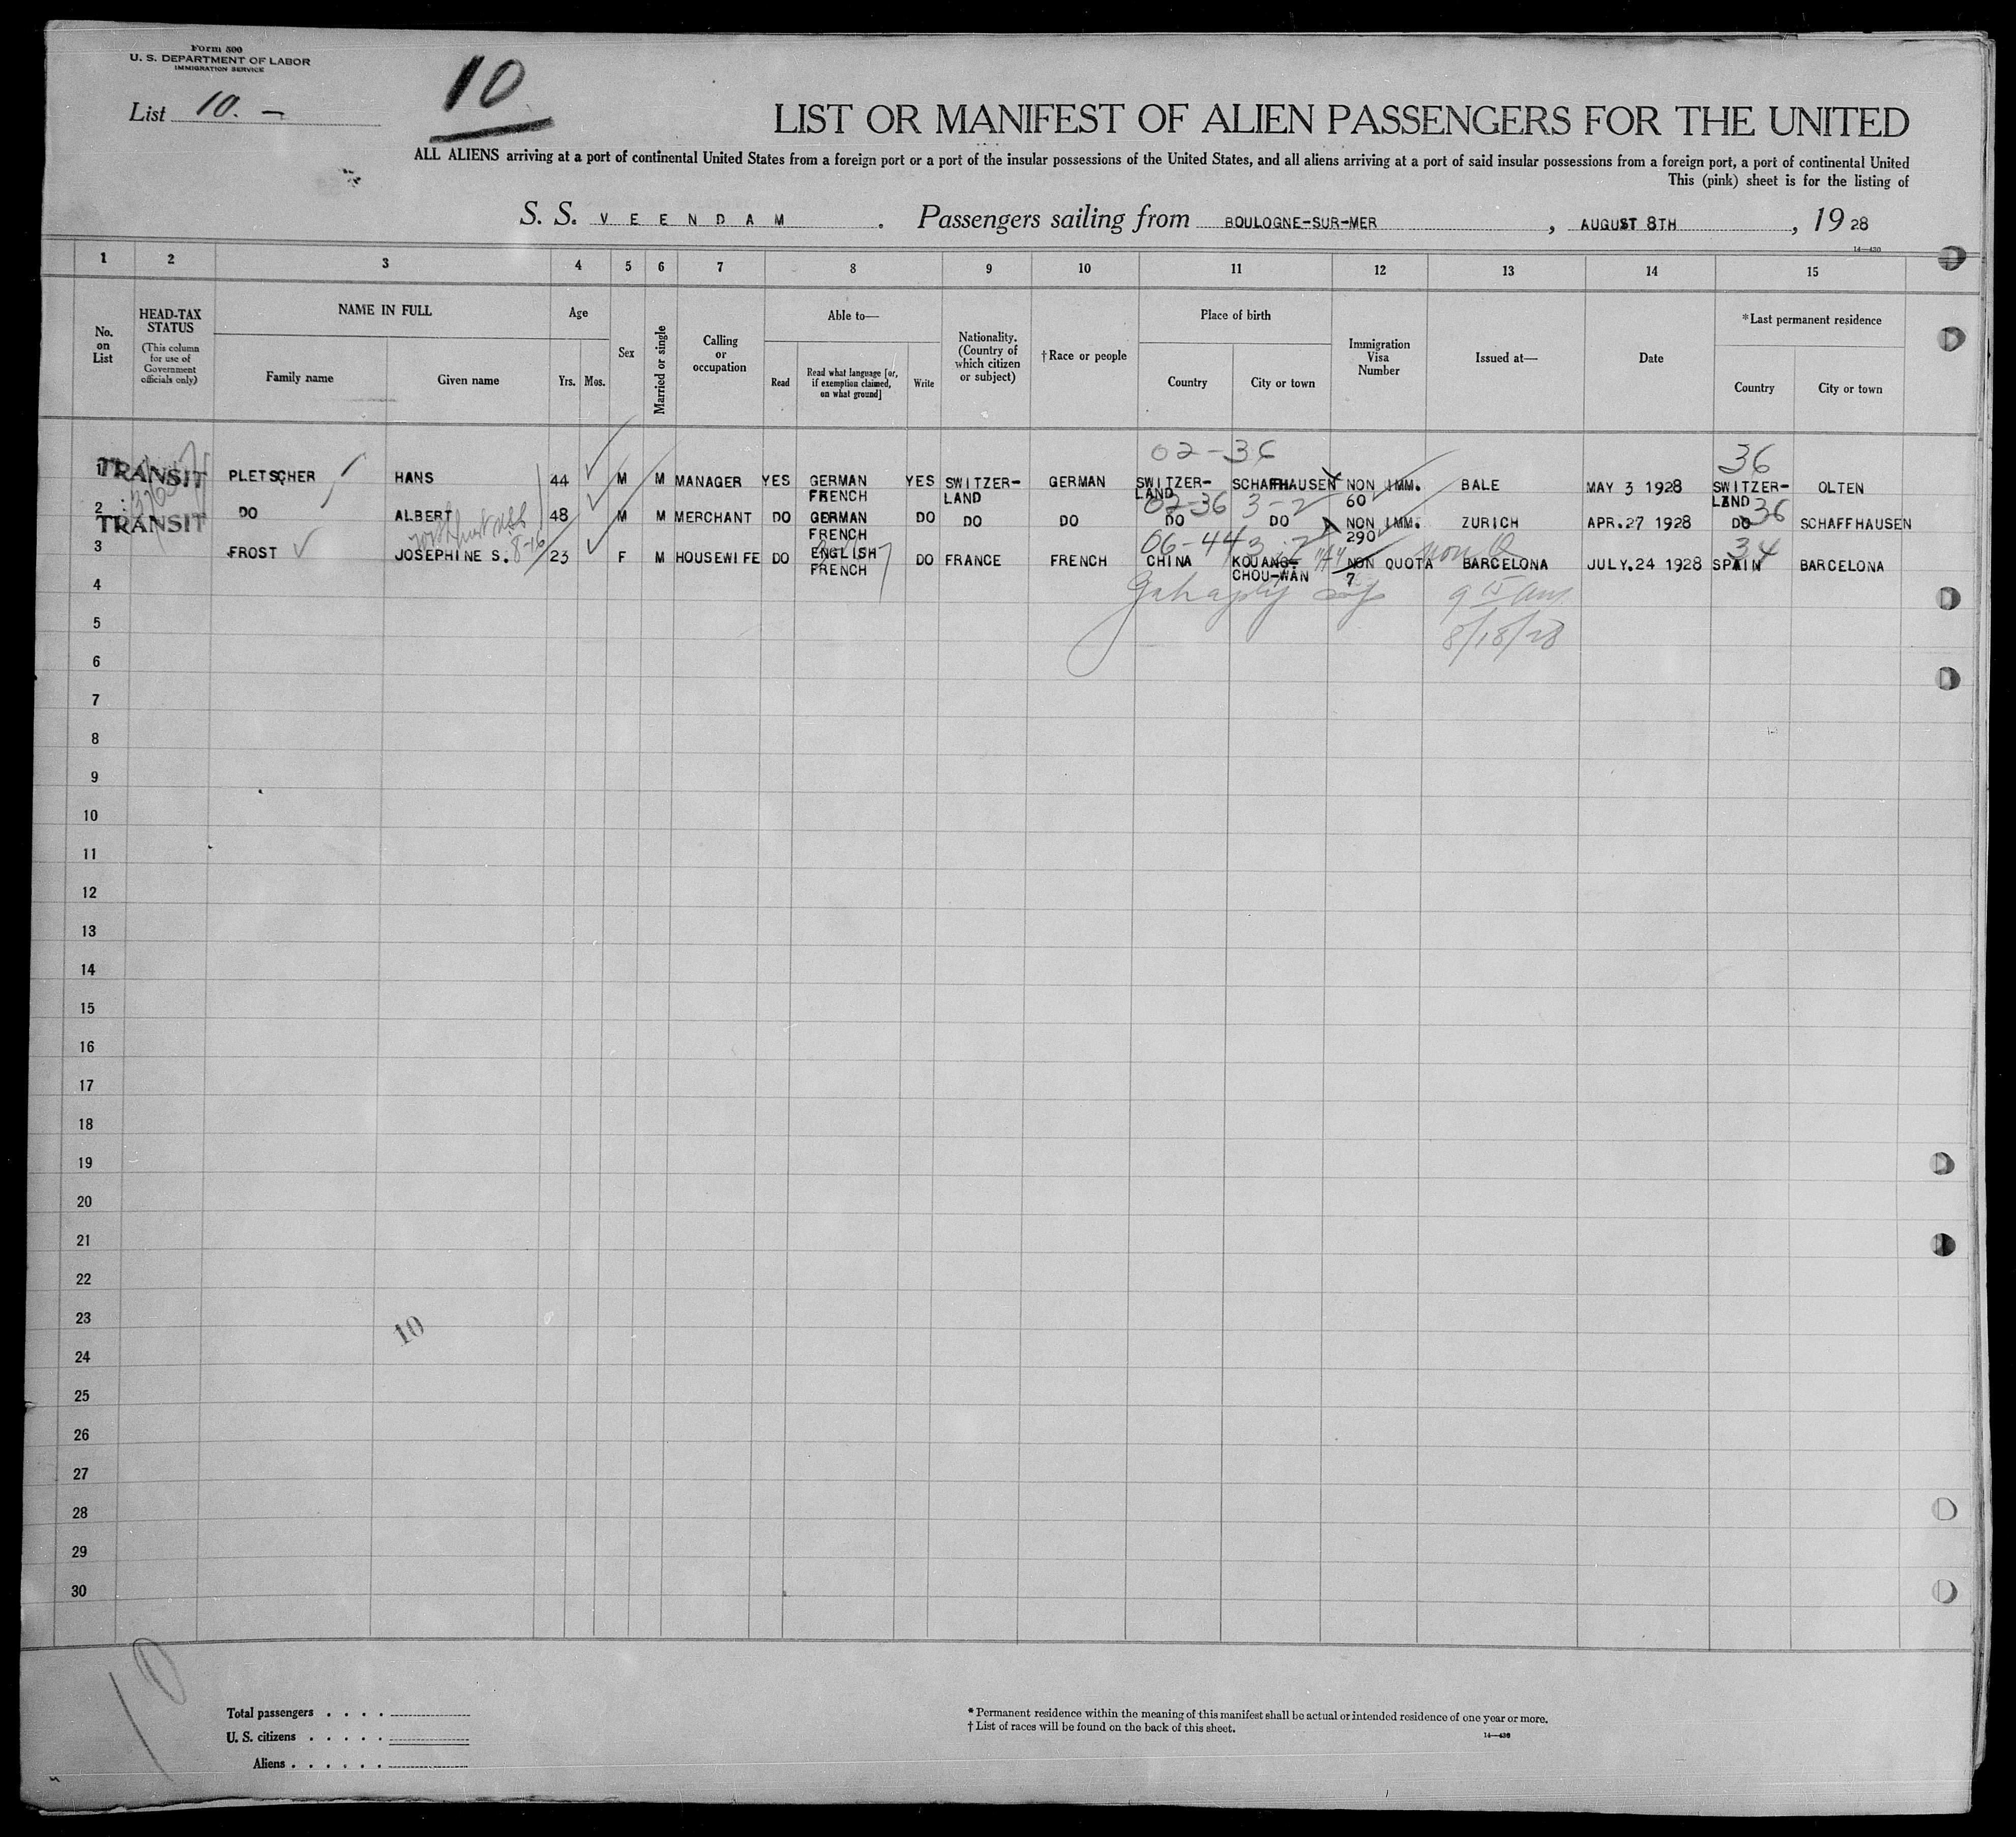 Form 500
U. S. DEPARTMENT OF LABOR
IMMIGRATION SERVICE
List 10. —
10
LIST OR MANIFEST OF ALIEN PASSENGERS FOR THE UNITED
ALL ALIENS arriving at a port of continental United States from a foreign port or a port of the insular possessions of the United States, and all aliens arriving at a port of said insular possessions from a foreign port, a port of continental United
This (pink) sheet is for the listing of
S. S. VEENDAM . Passengers sailing from BOULOGNE-SUR-MER , AUGUST 8TH , 19 28
14—430
1 2 3 4 5 6 7 8 9 10 11 12 13 14 15
No. on List
HEAD-TAX STATUS
(This column for use of Government officials only)
NAME IN FULL
Family name Given name
Age
Yrs. Mos.
Sex
Married or single
Calling or occupation
Able to—
Read
Read what language [or, if exemption claimed, on what ground]
Write
Nationality. (Country of which citizen or subject)
†Race or people
Place of birth
Country City or town
Immigration Visa Number
Issued at—
Date
*Last permanent residence
Country City or town
02-36 36
1 TRANSIT PLETSCHER HANS 44 M M MANAGER YES GERMAN YES SWITZER- GERMAN SWITZER- SCHAFFHAUSEN NON IMM. BALE MAY 3 1928 SWITZER- OLTEN
FRENCH LAND LAND 60 LAND
02-36 3-2 36
2 TRANSIT DO ALBERT 48 M M MERCHANT DO GERMAN DO DO DO DO DO NON IMM. ZURICH APR.27 1928 DO SCHAFFHAUSEN
FRENCH 290
8-16 06-44 3-2 non Q 34
3 FROST JOSEPHINE S. 23 F M HOUSEWIFE DO ENGLISH DO FRANCE FRENCH CHINA KOUANG- NON QUOTA BARCELONA JULY.24 1928 SPAIN BARCELONA
FRENCH CHOU-WAN 7
4
9 15 am
5
8/18/28
6
7
8
9
10
11
12
13
14
15
16
17
18
19
20
21
22
23
10
24
25
26
27
28
29
30
10
Total passengers . . . .
U. S. citizens . . . . .
Aliens . . . . . .
* Permanent residence within the meaning of this manifest shall be actual or intended residence of one year or more.
† List of races will be found on the back of this sheet.
14—430